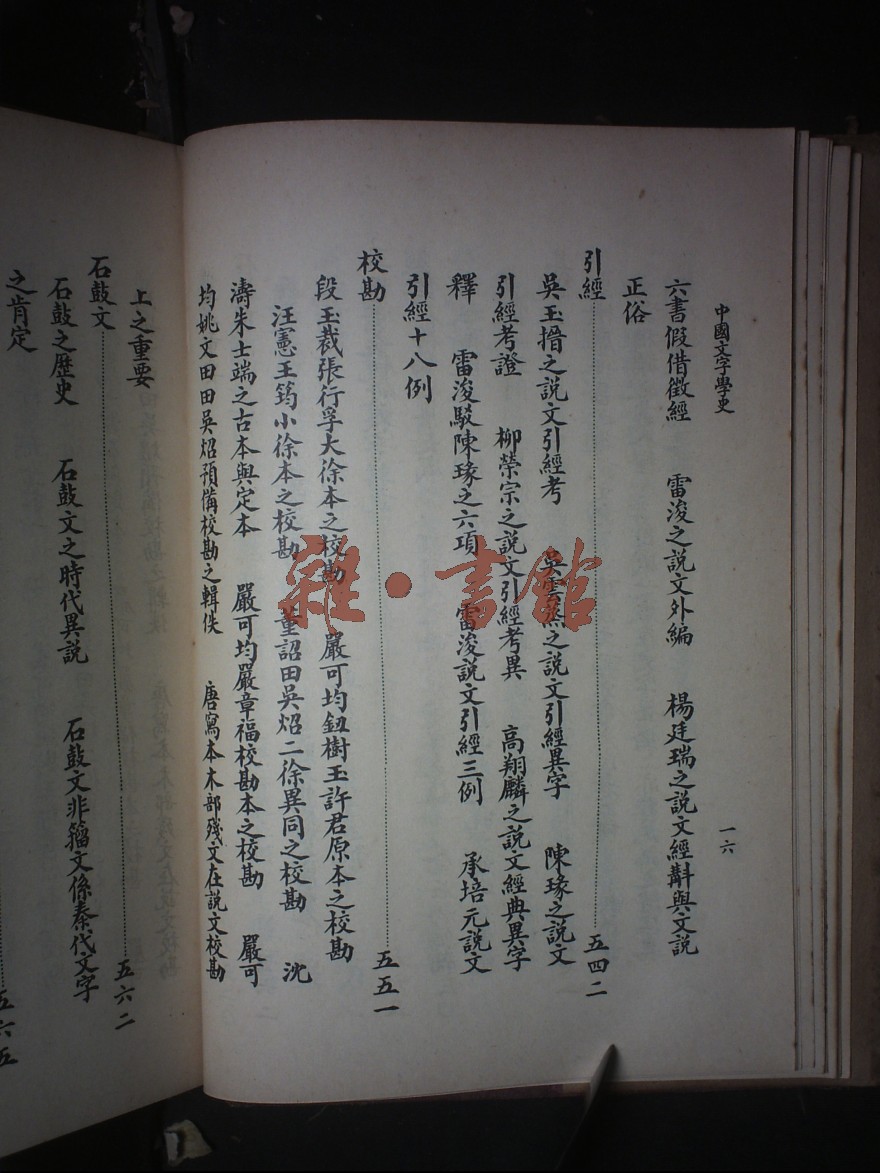 中國文字學史
一六
六書假借徵經　雷浚之說文外編　楊廷瑞之說文經斠與文說
正俗
引經……五四二
吳玉搢之說文引經考　吳雲蒸之說文引經異字　陳瑑之說文
引經考證　柳榮宗之說文引經考異　高翔麟之說文經典異字
釋　雷浚駁陳瑑之六項　雷浚說文引經三例　承培元說文
引經十八例
校勘……五五一
段玉裁張行孚大徐本之校勘　嚴可均鈕樹玉許君原本之校勘
汪憲王筠小徐本之校勘　董詔田吳炤二徐異同之校勘　沈
濤朱士端之古本與定本　嚴可均嚴章福校勘本之校勘　嚴可
均姚文田田吳炤預備校勘之輯佚　唐寫本木部殘文在說文校勘
上之重要
石鼓文……五六二
石鼓之歷史　石鼓文之時代異說　石鼓文非籀文係秦代文字
之肯定
五六五
雜·書館